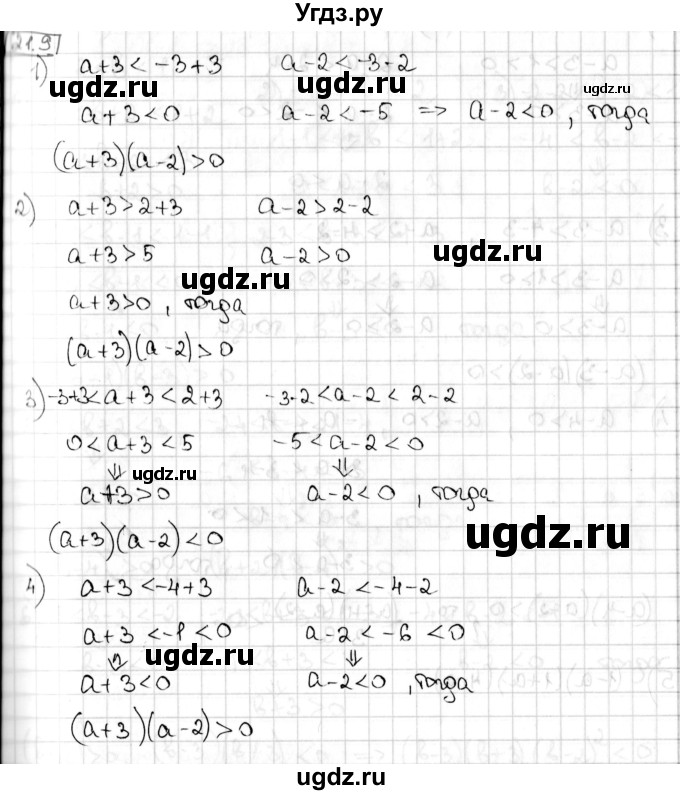 Угдз.ру
21.9
1) a+3<-3+3 a-2<-3-2
ugdz.ru ugdz.ru ugdz.ru
a+3<0 a-2<-5 => a-2<0, тогда
(a+3)(a-2)>0
2) a+3>2+3 a-2>2-2
a+3>5 a-2>0 ugdz.ru
ugdz.ru
a+3>0, тогда
(a+3)(a-2)>0
3) -3+3<a+3<2+3 -3-2<a-2<2-2
0<a+3<5 -5<a-2<0
⇓ ugdz.ru ⇓
a+3>0 a-2<0, тогда
(a+3)(a-2)<0 ugdz.ru
4) a+3<-4+3 a-2<-4-2
a+3<-1<0 a-2<-6<0
⇓ ugdz.ru ⇓
a+3<0 a-2<0, тогда
(a+3)(a-2)>0
ugdz.ru